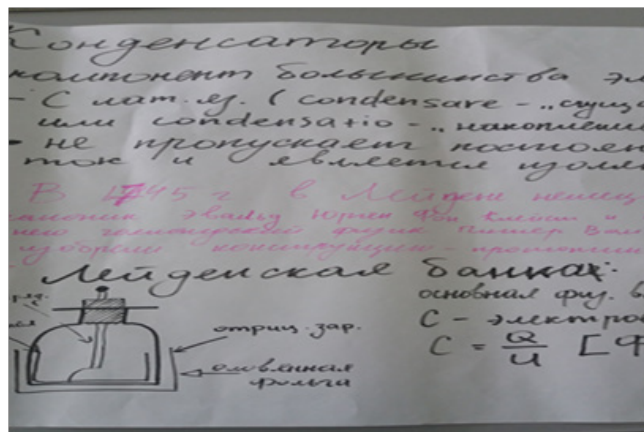 Конденсаторы
компонент большинства эл
- С лат. яз. (condensare - „сгуща
или condensatio - „накоплени
- не пропускает постоян
ток и является изоля
В 1745 г в Лейдене немец
каноник Эвальд Юрген фон Клейст и
него голландский физик Питер Ван
изобрели конструкцию - прототип
Лейденская банка:
основная физ. в
отриц. зар.
С - электро
оловянная
фольга
C = Q/U [Ф